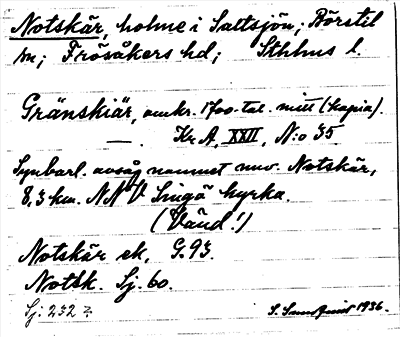 Notskär, holme i Saltsjön; Börstil
sn; Frösåkers hd; Sthlms l.
Gränskiär, omkr. 1700-tal. mitt (kopia).
— . Kr. A, XXII, N:o 35.
Synbarl. avsåg namnet nuv. Notskär,
8,3 km. NNV Singö kyrka.
(Vänd!)
Notskär ek, G.93.
Notsk. Sj. 60.
Sj: 232 z
S. Sundquist 1936.